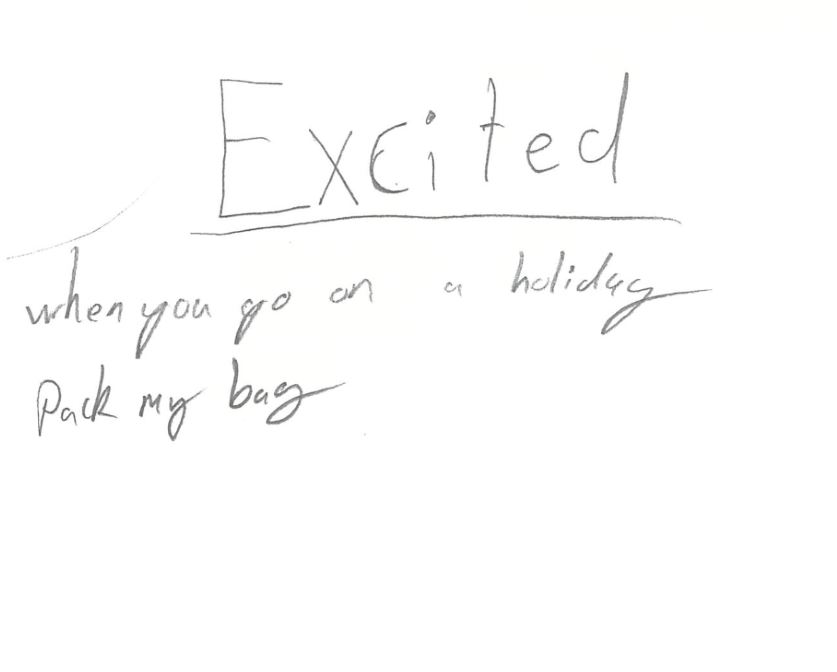 Excited
when you go on a holiday
Pack my bag